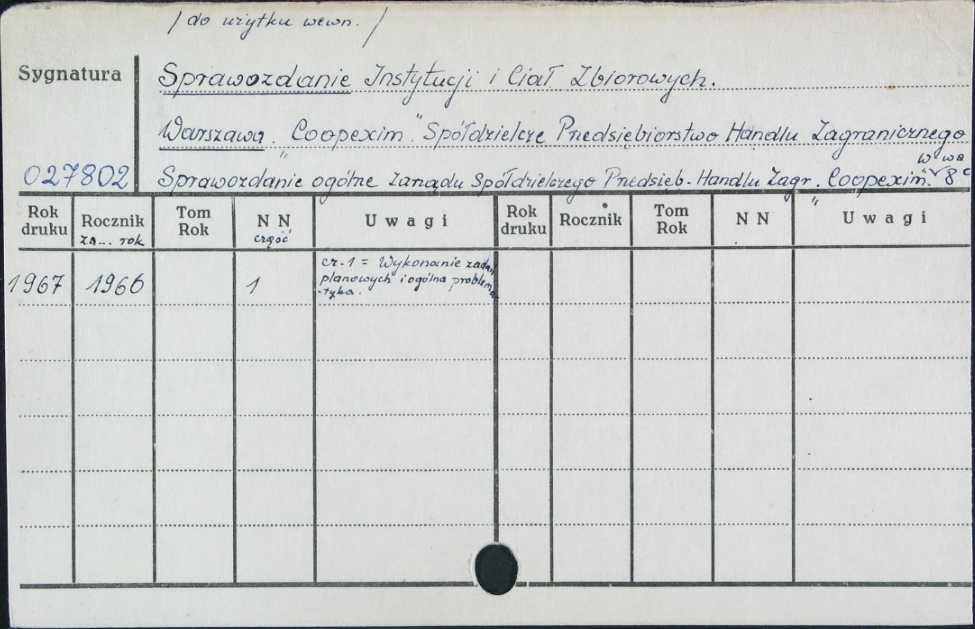 /do użytku wewn./
Sygnatura
Sprawozdanie Instytucji i Ciał Zbiorowych.
Warszawa. "Coopexim" Spółdzielcze Przedsiębiorstwo Handlu Zagranicznego
W-wa
027802
Sprawozdanie ogólne Zarządu Spółdzielczego Przedsięb. Handlu Zagr. "Coopexim". 8°
Rok druku Rocznik Tom Rok NN Uwagi Rok druku Rocznik Tom Rok NN Uwagi
za... rok część
1967 1966 1 cz.1 = Wykonanie zadań
planowych i ogólna problema-
-tyka.